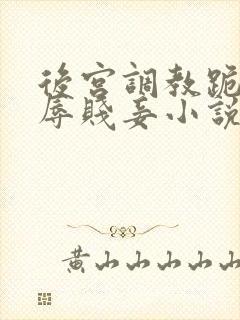 後宮調教跪
辱賤妾小說
黄山山山山